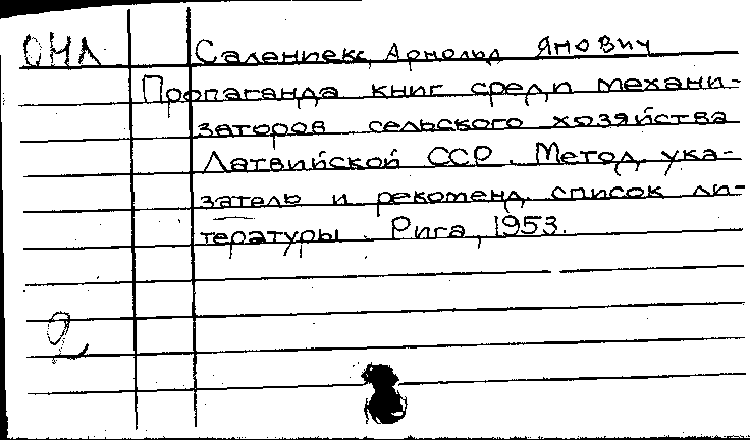 ОНЛ
Саленпекс, Арнольд Янович
Пропаганда книг среди механи-
заторов сельского хозяйства
Латвийской ССР. Метод. ука-
затель и рекоменд. список ли-
тературы. Рига, 1953.
2